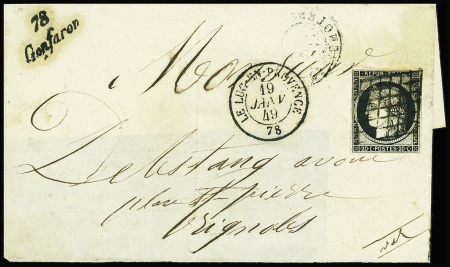 78
Gonfaron
LE LUC-EN-PROVENCE
19
JANV
49
78
REPUB FRANC
20 C POSTES 20 C
Monsieur
Delestang avoué
place St pierre
Brignoles